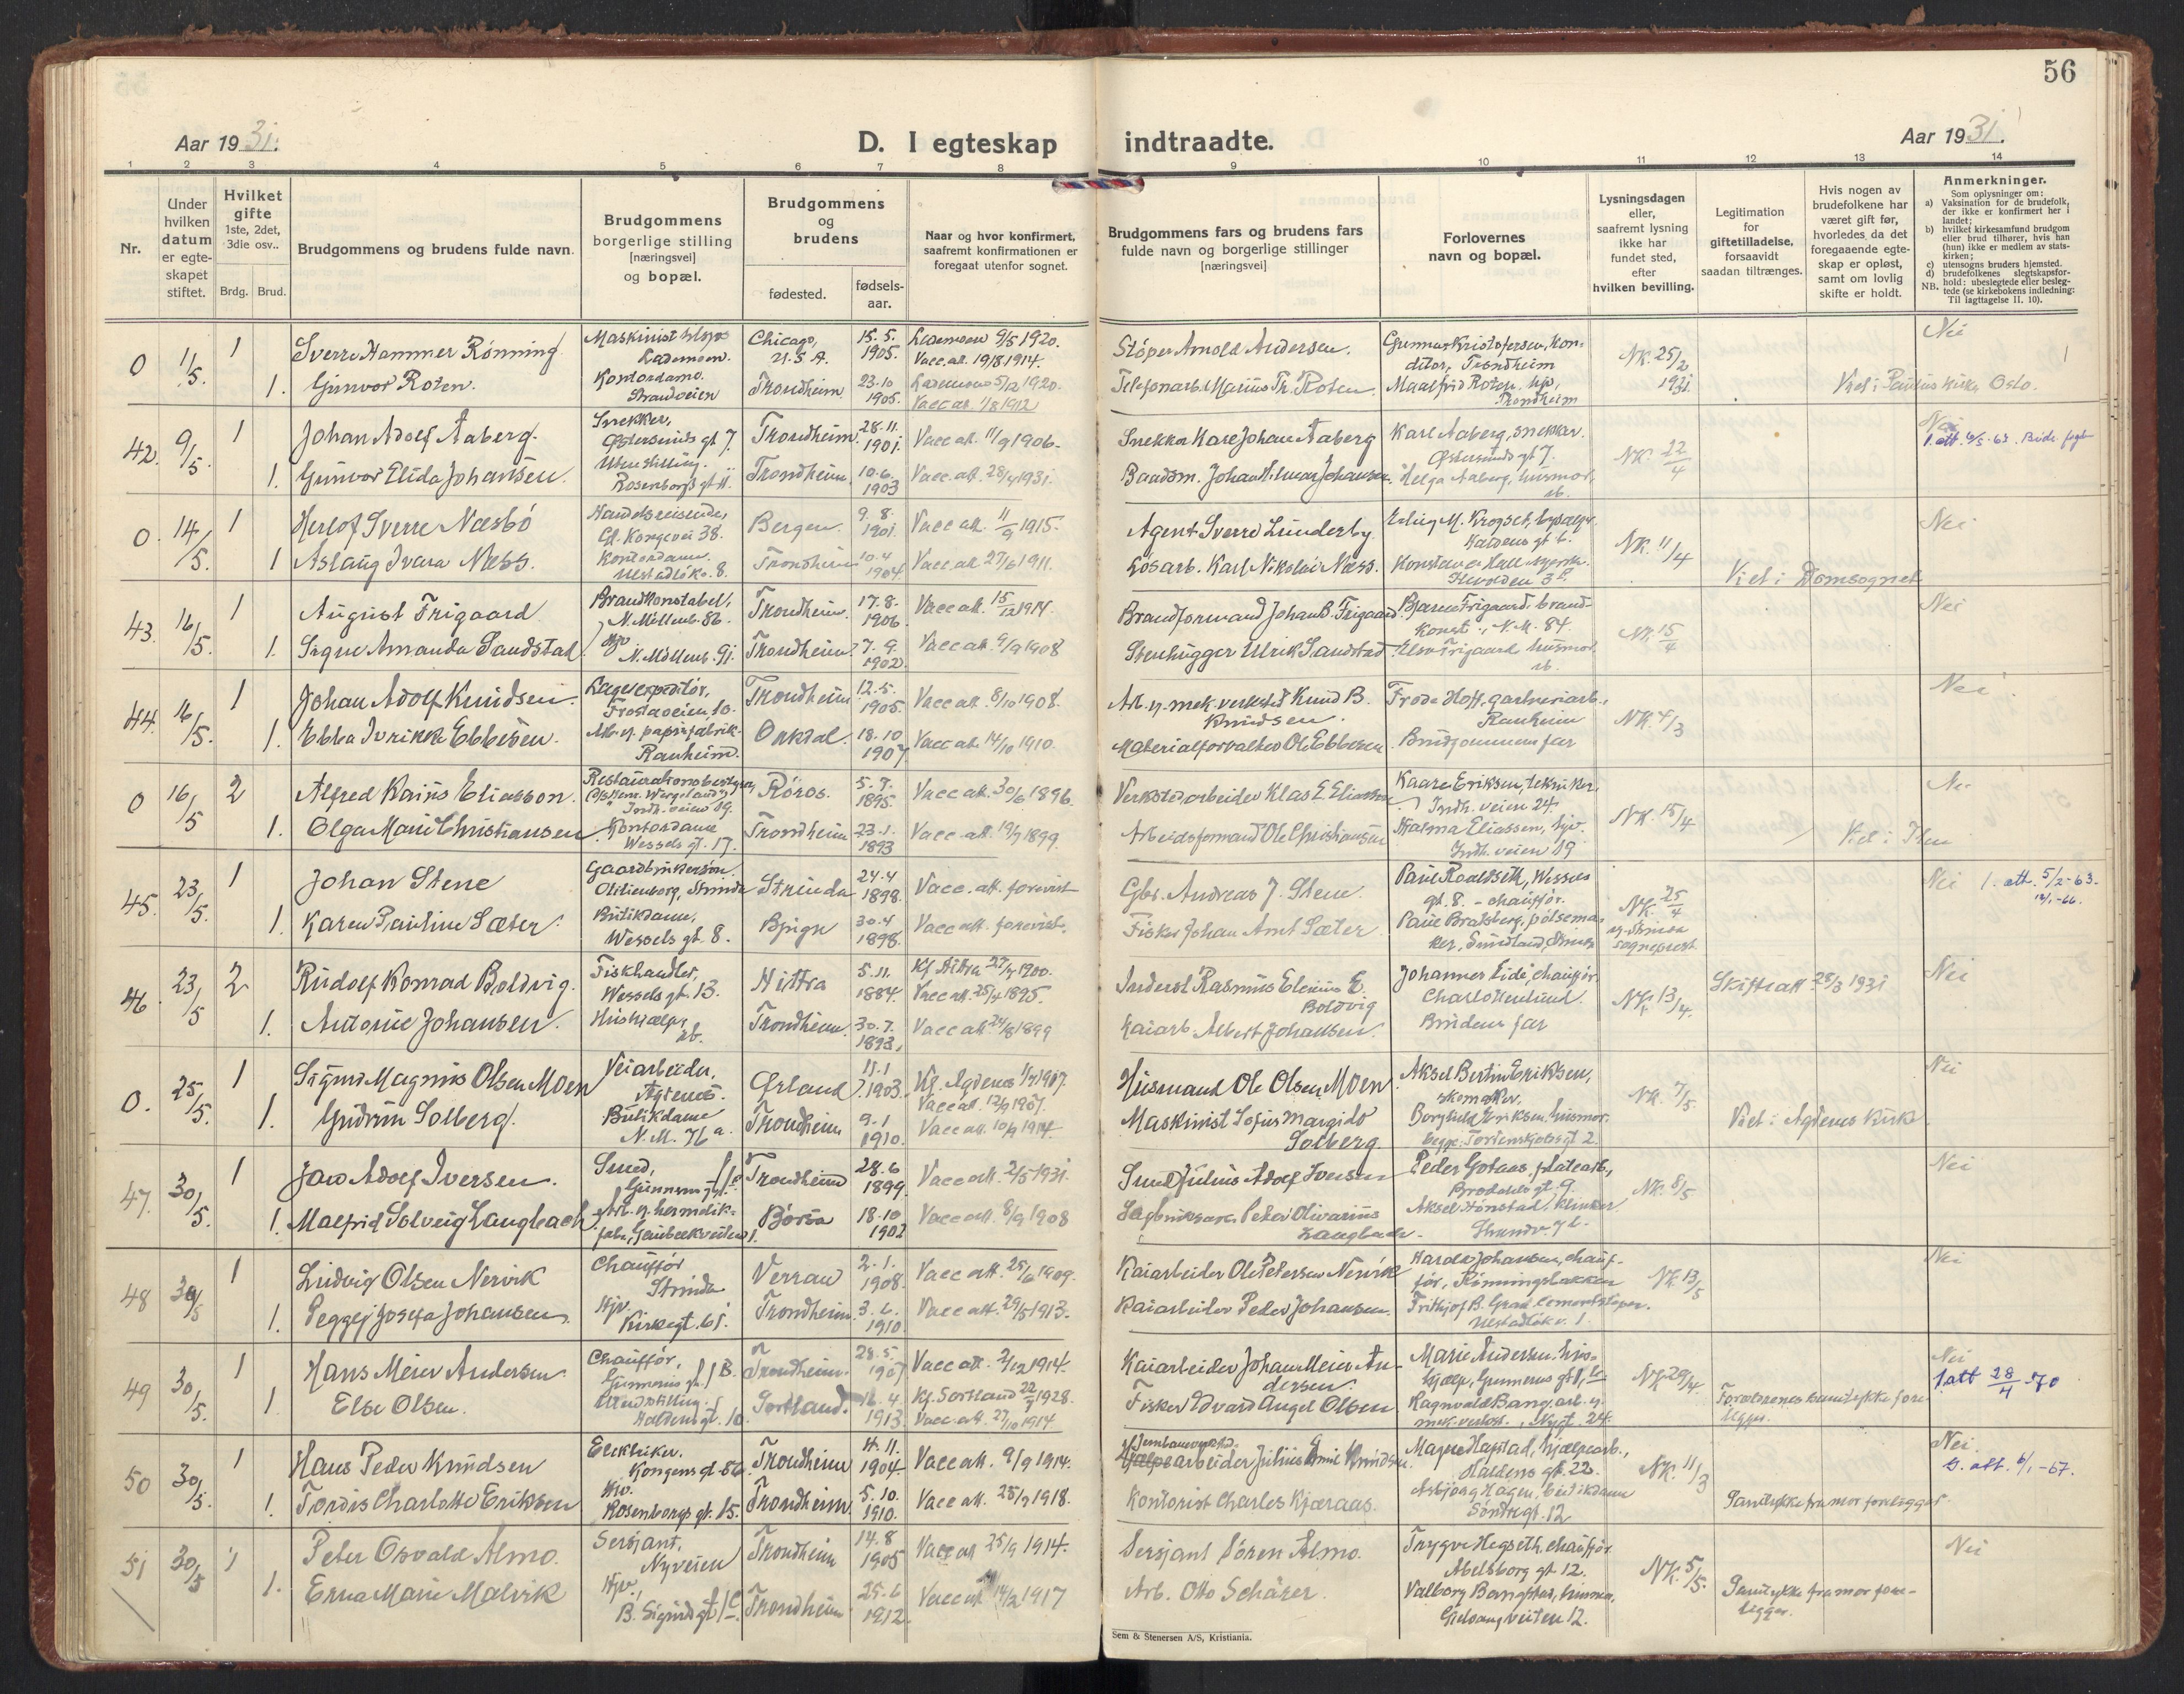 56
Aar 1931.
D. I egteskap indtraadte.
Aar 1931.
1 2 3 4 5 6 7 8 9 10 11 12 13 14
Nr.
Under hvilken datum er egte-skapet stiftet.
Hvilket gifte 1ste, 2det, 3die osv..
Brdg. Brud.
Brudgommens og brudens fulde navn.
Brudgommens borgerlige stilling [næringsvei] og bopæl.
Brudgommens og brudens
fødested.
fødsels-aar.
Naar og hvor konfirmert, saafremt konfirmationen er foregaat utenfor sognet.
Brudgommens fars og brudens fars fulde navn og borgerlige stillinger [næringsvei]
Forlovernes navn og bopæl.
Lysningsdagen eller, saafremt lysning ikke har fundet sted, efter hvilken bevilling.
Legitimation for giftetilladelse, forsaavidt saadan tiltrænges.
Hvis nogen av brudefolkene har været gift før, hvorledes da det foregaaende egte-skap er opløst, samt om lovlig skifte er holdt.
Anmerkninger.
Som oplysninger om:
a) Vaksination for de brudefolk, der ikke er konfirmert her i landet;
b) hvilket kirkesamfund brudgom eller brud tilhører, hvis han (hun) ikke er medlem av stats-kirken;
c) utensogns bruders hjemsted.
d) brudefolkenes slegtskapsfor-hold: ubeslegtede eller besleg-tede (se kirkebokens indledning: Til iagttagelse II. 10).
NB.
0 11/5. 1 Sverre Hammer Rönning Maskinist Lademoen. Chicago, U.S.A. 15.5. 1905. Lademoen 9/5 1920. Vacc.att. 19/8 1914. Stöper Arnold Andersen. Gunnar Kristofersen, Kon-ditor, Trondheim NK. 25/2 1931 Nei
1. Gunvor Roten. Kontordame. Strandveien Trondheim 23.10 1905. Lademoen 5/12 1920. Vacc att. 1/8 1912 Telefonarb. Marius Th. Roten Maalfrid Roten. hp, Trondheim Viet i Paulus kirke Oslo.
42. 9/5. 1 Johan Adolf Aaberg. Snekker, Östersunds gt 7. Trondheim. 28.11. 1901. Vacc att. 11/9 1906. Snekker Kare Johan Aaberg Karl Aaberg, snekker. Östersunds gt 7. NK. 22/4 Nei 1. att. 4/5-63.
1. Gunvor Elida Johansen. Uten stilling. Rosenborgs gt 11. Trondheim. 10.6. 1903 Vacc. att. 28/4 1931. Baadsm. Johan Johansen. Helga Aaberg, husmor, sb.
0. 14/5. 1 Herlof Sverre Næsbö Handelsreisende, Gl. Kongevei 38. Bergen. 9.8. 1901. Vacc att. 11/9 1915. Agent Sverre Lunderby. Erling M. Krogset, Kaldens gt 6. NK. 11/4 Nei
1 Aslaug Ivara Næss. Kontordame. Ulstadlökv. 8. Trondheim 10.4 1904 Vacc att 27/6 1911. Lösarb. Karl Nikolai Næss. Viet i Domsognet
43. 16/5. 1 August Frigaard Brandkonstabel, N. Möllenb. 86. Trondheim. 17.8. 1906. Vacc att. 15/12 1914. Brandformand Johan B. Frigaard. Bjarne Frigaard. brand-konst., N.M. 84. NK 15/4 Nei
1. Signe Amanda Sandstad Hjv. N. Möllenb. 91. Trondheim. 7.9. 1902. Vacc att. 9/9 1908 Stenhugger Ulrik Sandstad. Elsa Frigaard husmor sb.
44. 16/5. 1 Johan Adolf Knudsen. Lagerexpeditör, Frostaveien 10. Trondheim 12.5. 1905. Vacc att. 8/10 1908. Arb. v. mek. verksted Knud B. Knudsen. Frode Hoff, garveriarb., Ranheim NK 4/3 Nei
1. Ebba Ivrikke Ebbesen. Arb. v. papirfabrik. Ranheim. Orkdal. 18.10 1907 Vacc att. 14/10 1910. Materialforvalter Ole Ebbesen Brudgommens far
0 16/5 2 Alfred Kainus Eliasson. Restaurationsbestyrer Indh. veien 19. Röros. 5.7. 1895. Vacc att. 30/6 1896. Verkstedarbeider Klas E Eliasson Kaare Eriksen, tekniker, Indh. veien 24. NK. 15/4 Nei
1. Olga Marie Christiansen Kontordame Wessels gt. 17. Trondheim 23.1. 1893 Vacc. att. 19/9 1899. Arbeidsformand Ole Christiansen Halma Eliassen, hjv. Indh. veien 19 Viet i Ilen
45. 23/5. 1 Johan Stene Gaardbrukersön. Otilienborg, Strinda Strinda 24.4 1898. Vacc. att. forevist Gbr. Andreas J. Stene. Paul Roaldseth, Wessels gt. 8. - chaufför. NK. 25/4 Strinda sogneprest Nei 1. att. 5/2-63. 12/1-66.
1. Karen Pauline Sæter. Butikdame, Wessels gt. 8. Bjugn 30.4 1898. Vacc att. forevist. Fisker Johan Arnt Sæter Paul Bratsberg, pölsema-ker, Sundland, Strinda
46. 23/5 2 Rudolf Konrad Boldvig. Fiskhandler, Wessels gt. 13. Hittra 5.11. 1884. Kf. Hitra 27/9 1900. Vacc att. 25/4 1895. Inderst Rasmus Elenius E. Boldvig Johannes Eide, chauffør. Charlottenlund. NK 13/4. Skifteatt. 28/3 1931 Nei
1. Antonie Johansen. Hushjælp, sb. Trondheim 30.7. 1893. Vacc att. 24/8 1899 Kaiarb. Albert Johansen. Brudens far
0. 25/5. 1 Sigurd Magnus Olsen Moen Veiarbeider, Agdenes. Ørland 11.1 1903. Kf. Agdenes 1/7 1917. Vacc att. 12/9 1907. Husmand Ole Olsen Moen Aksel Bertin Eriksen, skomaker. NK. 7/5 Nei
1. Gudrun Solberg. Butikdame N.M. 76a. Trondheim 9.1 1910. Vacc att. 10/9 1914. Maskinist Sofus Margido Solberg. Borghild Eriksen, husmor. begge: Tordenskjolds gt 2. Viet i Agdenes Kirke
47. 30/5. 1 Jan Adolf Iversen. Smed, Gunnerus gt. Trondheim 28.6 1899. Vacc att. 2/5 1931. Smed Julius Adolf Iversen Peder Gotaas, platearb., NK. 8/5 Nei
1. Malfrid Solveig Langbach Arb. v. hermetik-fabr., Gaubækveiten 1. Börsa 18.10 1902 Vacc att. 8/9 1908 Sagbruksarb. Peter Olivarius Langbach. Aksel Hönstad, klinker,
48 30/5 1 Ludvig Olsen Nervik Chauffør Strinda Verran 2.1. 1908. Vacc att. 25/6 1909. Kaiarbeider Ole Petersen Nervik Harald Johansen, chauf-för, Rönningsbakken NK 13/5 Nei
1. Peggy Josefa Johansen. Hjv. Kirkegt. 61. Trondheim 3.6. 1910 Vacc att. 29/5 1913. Kaiarbeider Peder Johansen. Frithjof B. Graa, cementstøper. Ulstadlökv. 1.
49 30/5. 1 Hans Meier Andersen Chauffør, Gunnerus gt. 1B. Trondheim. 28.5. 1907 Vacc att. 2/12 1914. Kaiarbeider Johan Meier An-dersen. Marie Andersen, hus-hjælp, Gunnerus gt 1, NK 29/4. Nei 1 att 28/4-70
1 Else Olsen. Uten stilling. Kaldens gt. 10 Sortland. 16.4. 1913 Kf. Sortland 22/7 1928. Vacc. att. 27/10 1914 Fisker Edvard Angel Olsen Ragnvald Bang, arb. v. mek. verkst., Nygt. 24. Forældrenes samtykke fore-ligger.
50 30/5. 1 Hans Peder Knudsen Elektriker. Kongens gt 86. Trondheim 4.11. 1904 Vacc att. 9/9 1914. arbeider Julius Emil Knudsen. Magne Hapstad, hjælpearb., Kaldens gt. 22. NK. 11/3 Nei. att. 6/1-67.
1. Tordis Charlotte Eriksen Hv. Rosenborgs gt. 15. Trondheim 5.10. 1910. Vacc att. 25/9 1918. Kontorist Charles Kjæraas. Asbjörg Hagen, butikdame Söndregt. 12 Samtykke fra mor foreligger.
51 30/5 1 Peter Osvald Almo. Sersjant. Nyveien Trondheim 14.8 1905 Vacc att 25/9 1914. Sersjant Sören Almo. Trygve Hegseth, chauffør Abelsborg gt 12. NK. 5/5. Nei
1. Erna Marie Malvik Hjv. B. Sigurds gt 1c. Trondheim 25.6 1912. Vacc att 14/2 1917 Arb. Otto Schärer. Valborg Bangstad, husmor, Gjelvangveiten 12. Samtykke fra mor fore-ligger.
Sem & Stenersen A/S, Kristiania.